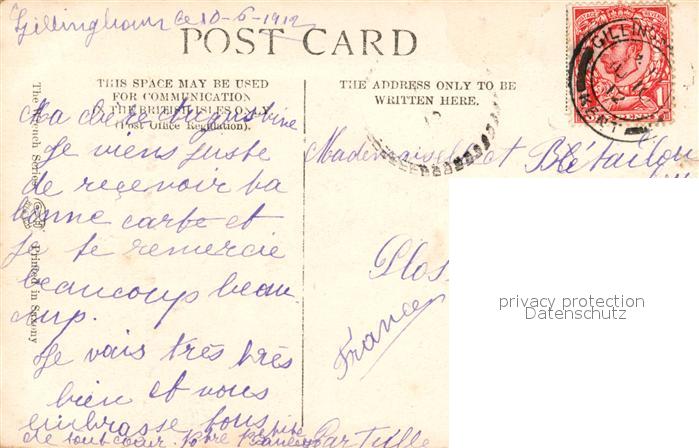 Gillingham le 10-6-1912
POST CARD
THIS SPACE MAY BE USED
FOR COMMUNICATION
IN THE BRITISH ISLES ONLY.
(Post Office Regulation).
THE ADDRESS ONLY TO BE
WRITTEN HERE.
GILLING
KENT
Ma chère Augustine
Je viens juste
de reçevoir ta
bonne carte et
Je te remercie
beaucoup beau-
cup.
Je vais très très
bien et vous
embrasse tous
de tout cœur. Votre
Mademoiselle
Plos
France
The Series
Printed in Saxony
privacy protection
Datenschutz